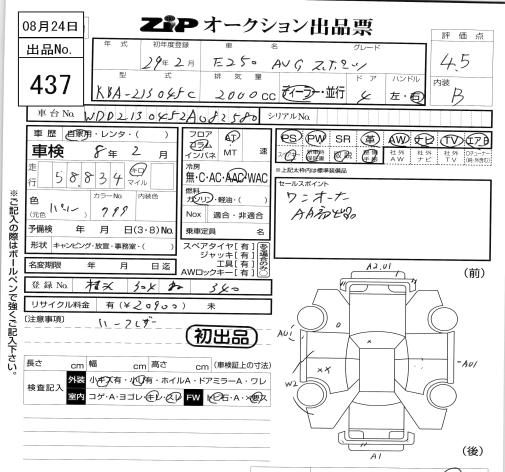 08月24日
出品No.
437
ZIP オークション出品票
年式 初年度登録 車名 グレード
29年2月 E250 AVG
型式 排気量 ドア ハンドル
RBA-213045C 2000cc ディーラー・並行 4 左・右
評価点
4.5
内装
B
車台No. WDD2130452A082580 シリアルNo.
車歴 自家用・レンタ・( )
車検 8年2月
走行 58,834 キロ マイル
色 (元色 ) カラーNo. 799 内装色
予備検 年 月 日 (3・8) No.
形状 キャンピング・放宣・事務室・( )
名変期限 年 月 日迄
登録No. 304 340
リサイクル料金 有(¥20900) 未
フロア コラム インパネ
AT MT 速
冷房
無・C・AC・AAC・WAC
燃料
ガソリン・軽油・( )
Nox 適合・非適合
乗車定員 名
スペアタイヤ[有]
ジャッキ[有]
工具[有]
AWロックキー[有]
PS PW SR 革 AW ナビ TV エアB
社外AW 社外ナビ 社外TV
※上記太枠内は標準装備品
セールスポイント
ワンオーナー
AA初出品
[注意事項]
初出品
長さ cm 幅 cm 高さ cm (車検証上の寸法)
検査記入 外装 小キズ有・小凹有・ホイルA・ドアミラーA・ワレ
室内 コゲ・A・ヨゴレ・キレ・スレ FW トビ石・A・×要ス
※ご記入の際はボールペンで強くご記入下さい。
(前)
A2,U1
AU1
AU1
W2
A1
(後)